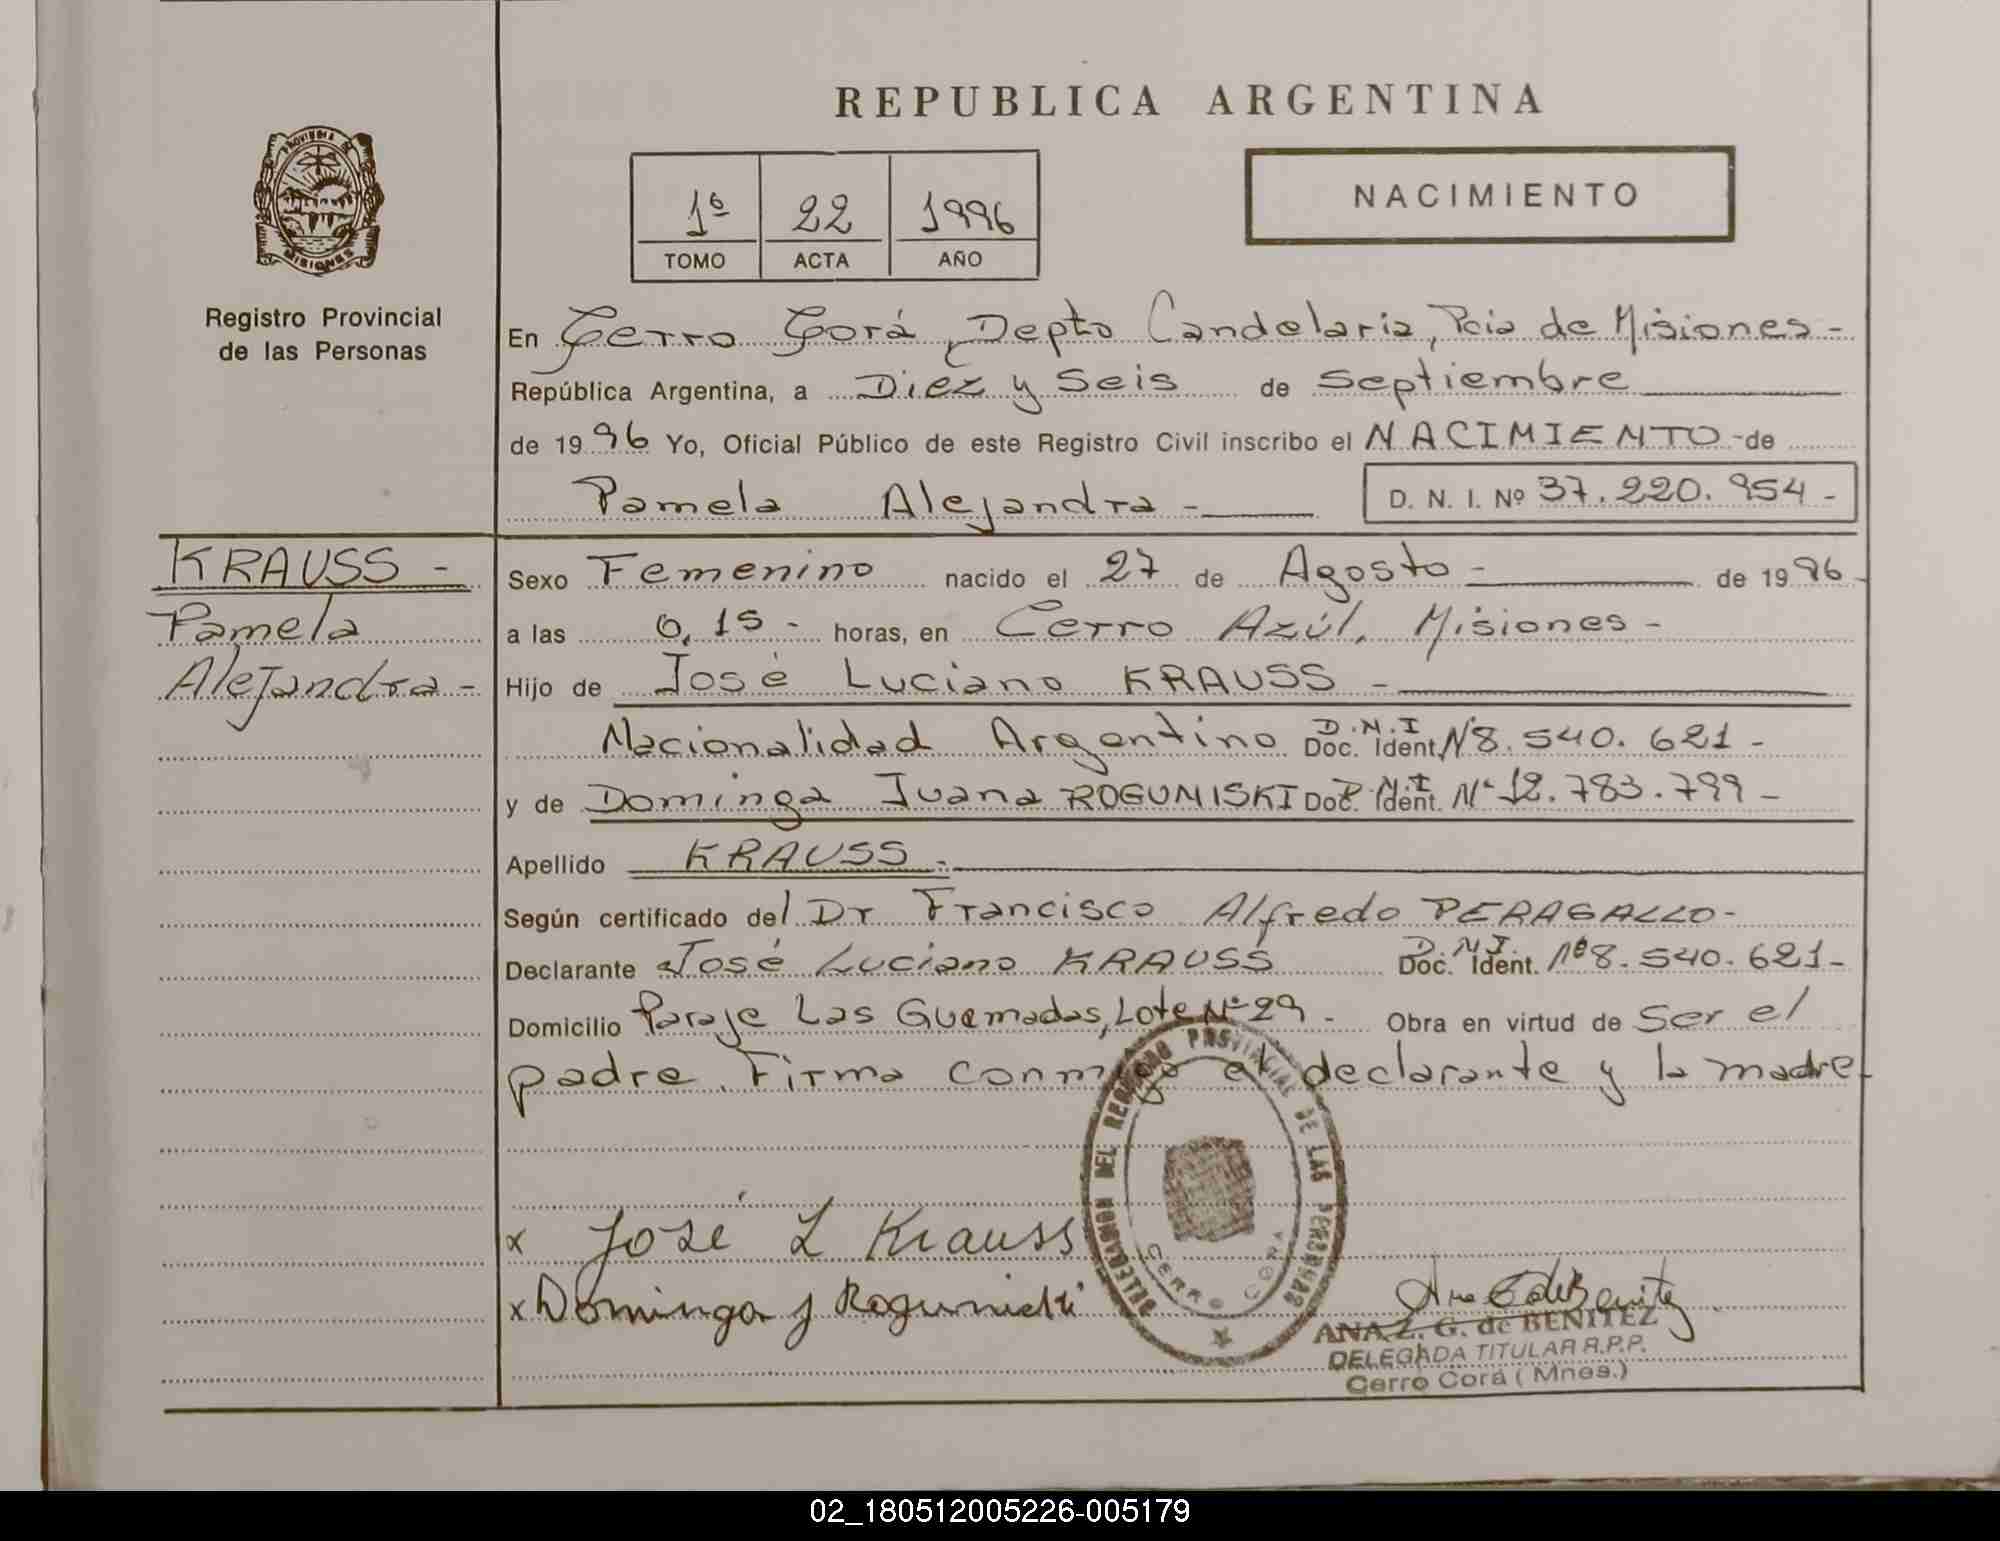 REPUBLICA ARGENTINA
PROVINCIA DE
MISIONES
Registro Provincial
de las Personas
1º 22 1996
TOMO ACTA AÑO
NACIMIENTO
En Cerro Corá, Depto Candelaria, Pcia de Misiones -
República Argentina, a Diez y Seis de Septiembre
de 1996 Yo, Oficial Público de este Registro Civil inscribo el NACIMIENTO - de
Pamela Alejandra - D. N. I. Nº 37.220.954 -
KRAUSS -
Pamela
Alejandra -
Sexo Femenino nacido el 27 de Agosto - de 1996 -
a las 0,15 - horas, en Cerro Azúl, Misiones -
Hijo de José Luciano KRAUSS -
Nacionalidad Argentino D.N.I Doc. Ident. Nº 8.540.621 -
y de Dominga Juana ROGUMISKI D.N.I Doc. Ident. Nº 12.783.799 -
Apellido KRAUSS -
Según certificado del Dr Francisco Alfredo PERAGALLO -
Declarante José Luciano KRAUSS D.N.I. Doc. Ident. Nº 8.540.621 -
Domicilio Paraje Las Quemadas, Lote Nº 29 - Obra en virtud de Ser el
padre. Firma conmigo el declarante y la madre -
DELEGACION DEL REGISTRO PROVINCIAL DE LAS PERSONAS
CERRO CORA
x José L Krauss
x Dominga J Rogumiski
Ana G de Benitez
ANA Z. G. de BENITEZ
DELEGADA TITULAR R.P.P.
Cerro Corá (Mnes.)
02_180512005226-005179